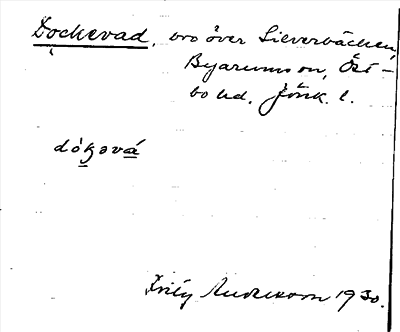 Dockevad, bro över Sieverbäcken,
Byarums sn, Öst-
bo hd. Jönk. l.
dòkəvá
Andersson 1930.